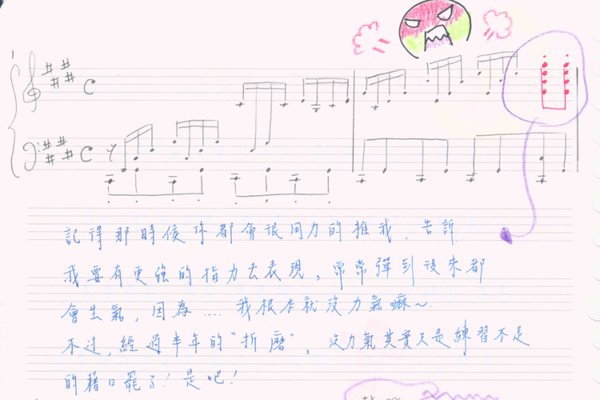 記得那時候你都會很用力的推我，告訴
我要有更強的指力去表現，常常彈到後來都
會生氣，因為....我根本就沒力氣嘛～
不過，經過半年的"折磨"，沒力氣其實只是練習不足
的藉口罷了！是吧！